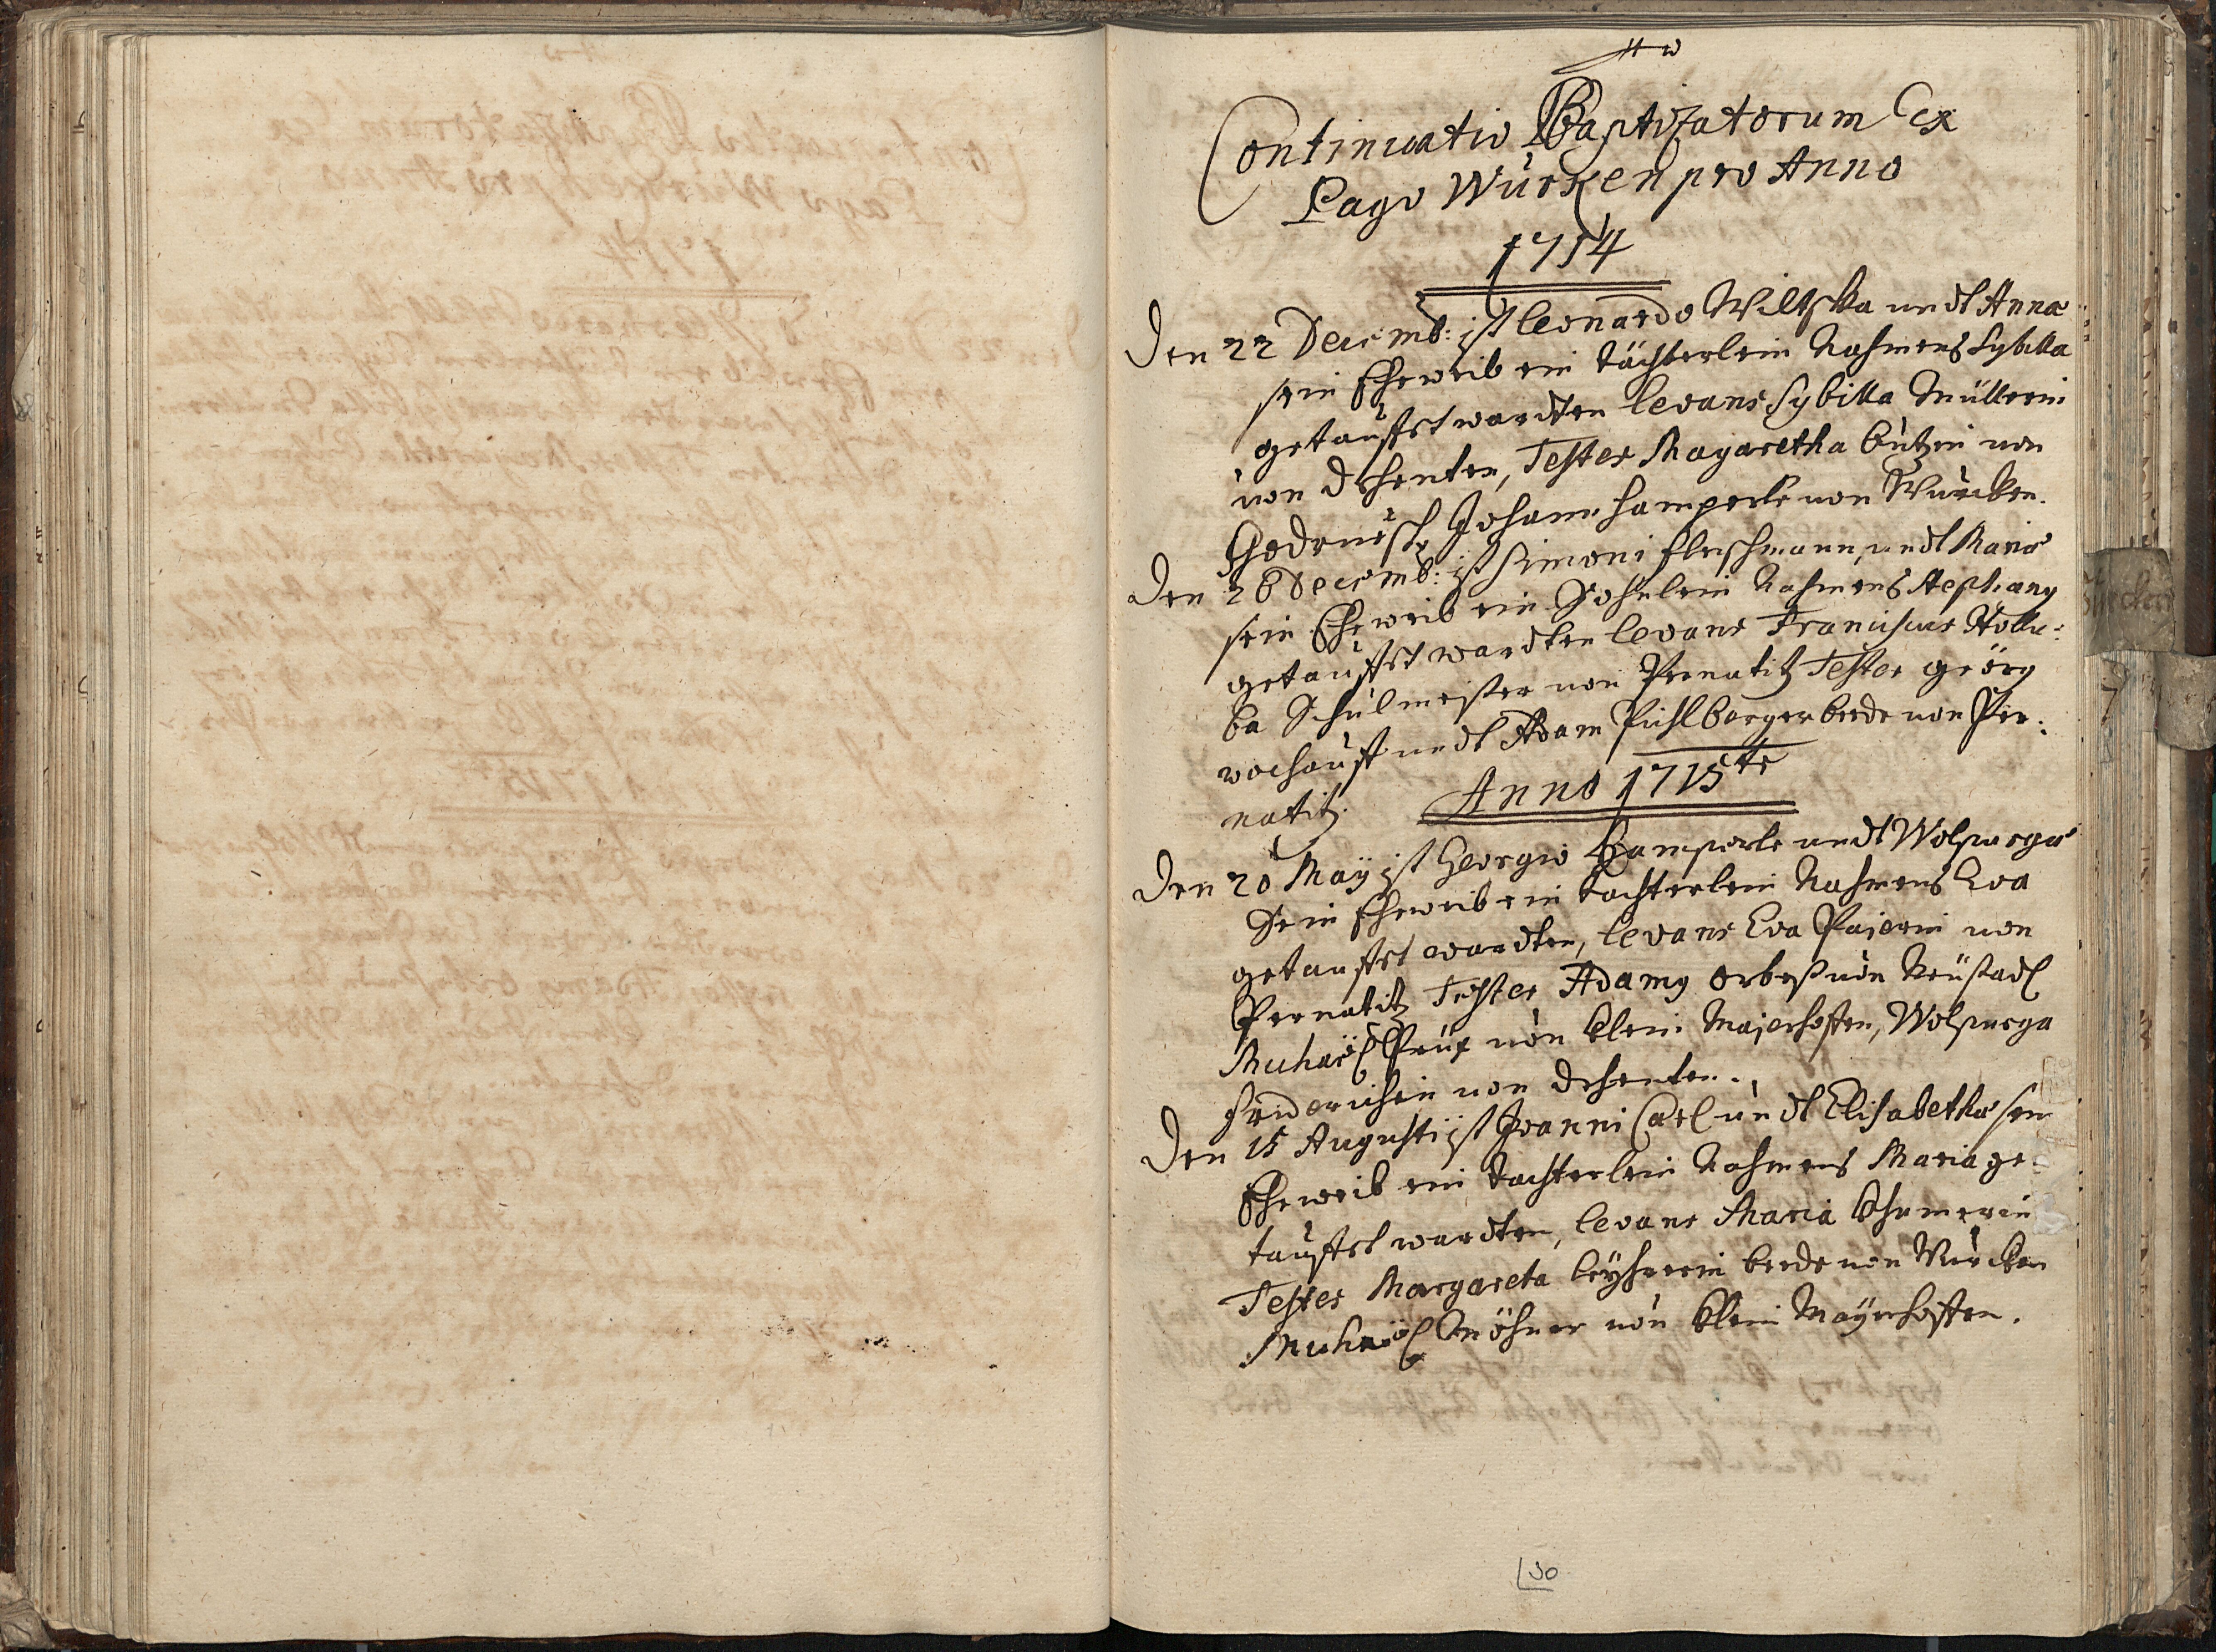 Continuatio Baptizatorum Ex
Pago Würken pro Anno
1714
Den 22 Decemb: ist Leonardo Wiltschka undt Anna
sein Eheweib ein Töchterlein Nahmens Sybilla
getaufft wordten levans Sybilla Müllerin
von Dehenten, Testes Magaretha Lutzin von
Godrusch, Johann Hamperle von Würcken.
Den 26 Decemb: ist Simoni Fleischmann, undt Maria
sein Eheweib ein Sohnlein Nahmens Stephany
getaufft wordten levans Franciscus Hollu:
ba Schulmeister von Pernatitz Testes Georg
undt Adam Pichlberger beede von Per:
natitz.
Anno 1715te
Den 20 Maÿ ist Georgio Hamperle undt Wolpurga
Sein Eheweib ein tochterlein Nahmens Eva
getaufft wordten, levans Eva Paierin von
Pernatitz Testes Adamy von Neüstadl
Michaël von Klein Majerhoffen, Wolpurga
Friderichin von Dehenten.
Den 15 Augusti ist Joanni Carl undt Elisabetha sein
Eheweib ein tochterlein Nahmens Maria ge
taufft wordten, levans Maria
Testes Margareta beede von Würcken
Michaël von Klein Maÿrhoffen.
50